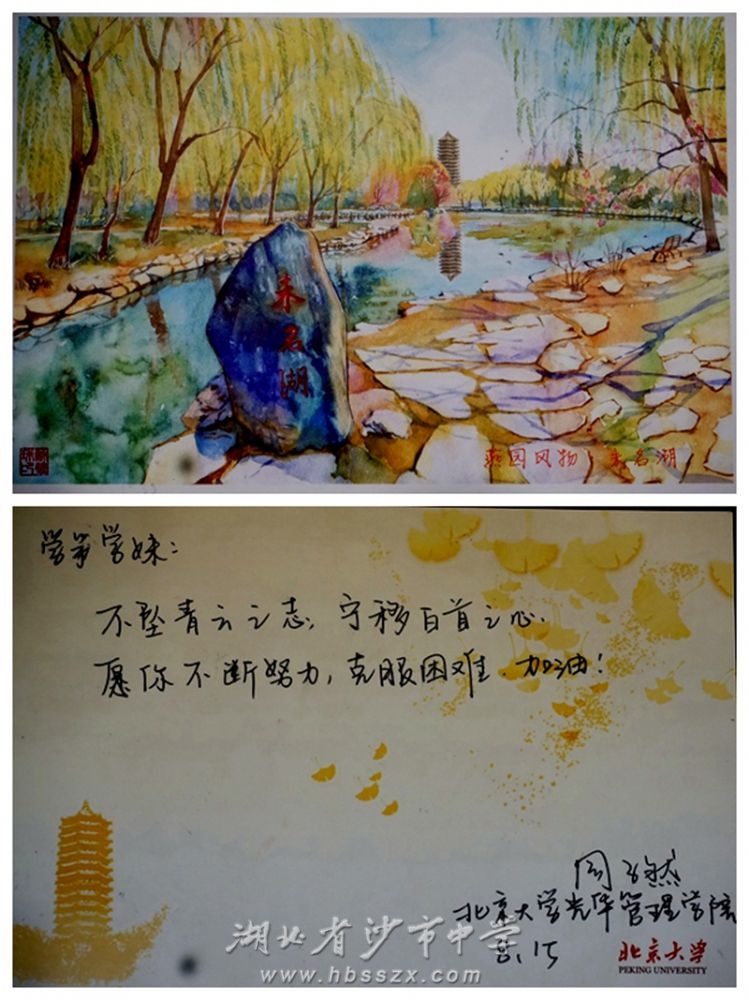 未名湖
燕园风物·未名湖
学弟学妹：
不坠青云之志，宁移白首之心.
愿你不断努力，克服困难.加油！
周子然
北京大学光华管理学院
8.15
湖北省沙市中学
www.hbsszx.com
北京大学
PEKING UNIVERSITY